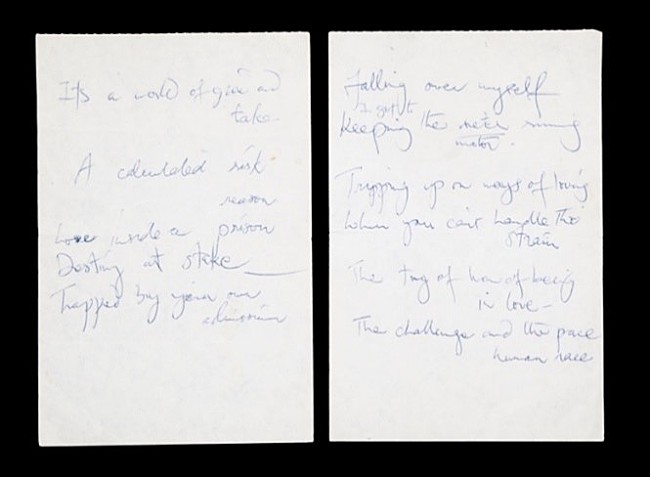 Its a world of give and
take
A calculated risk
reason
Love inside a prison
Destiny at stake
Trapped by your own
admission
Falling over myself
I got t
Keeping the meter running
motor
Tripping up on ways of loving
When you can't handle the
strain
The tug of war of being
in love -
The challenge and the pace
human race